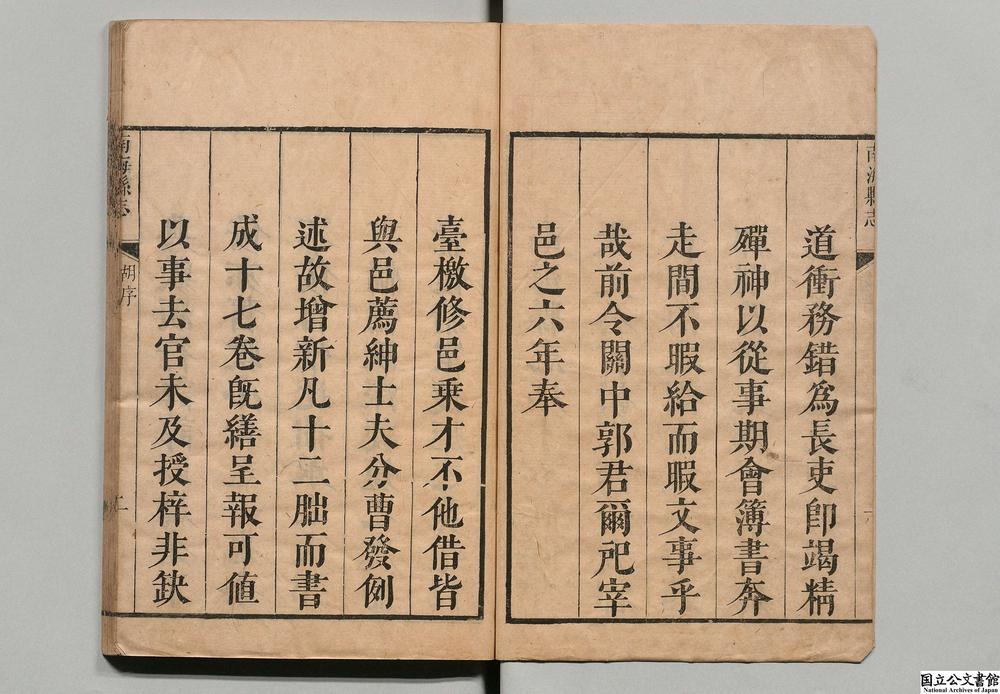 南海縣志
道衝務錯為長吏卽竭精
殫神以從事期會簿書奔
走間不暇給而暇文事乎
哉前令關中郭君爾戺宰
邑之六年奉
臺檄修邑乗才不他借皆
與邑薦紳士夫分曹發例
述故增新凡十二朏而書
成十七卷旣繕呈報可値
以事去官未及授梓非缺
南海縣志
胡序
二
国立公文書館
National Archives of Japan